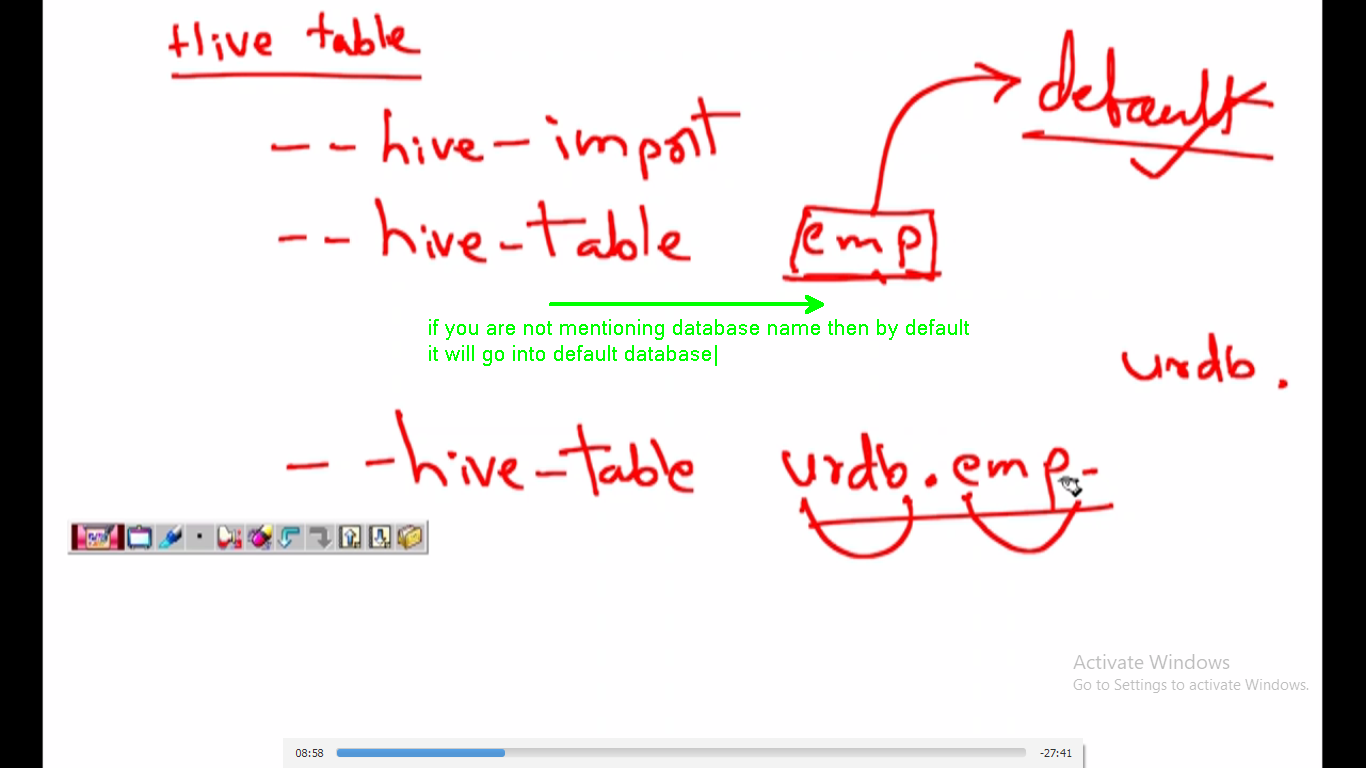 Hive table
default
--hive-import
--hive-table emp
if you are not mentioning database name then by default
it will go into default database
urdb.
--hive-table urdb.emp-
Activate Windows
Go to Settings to activate Windows.
08:58
-27:41